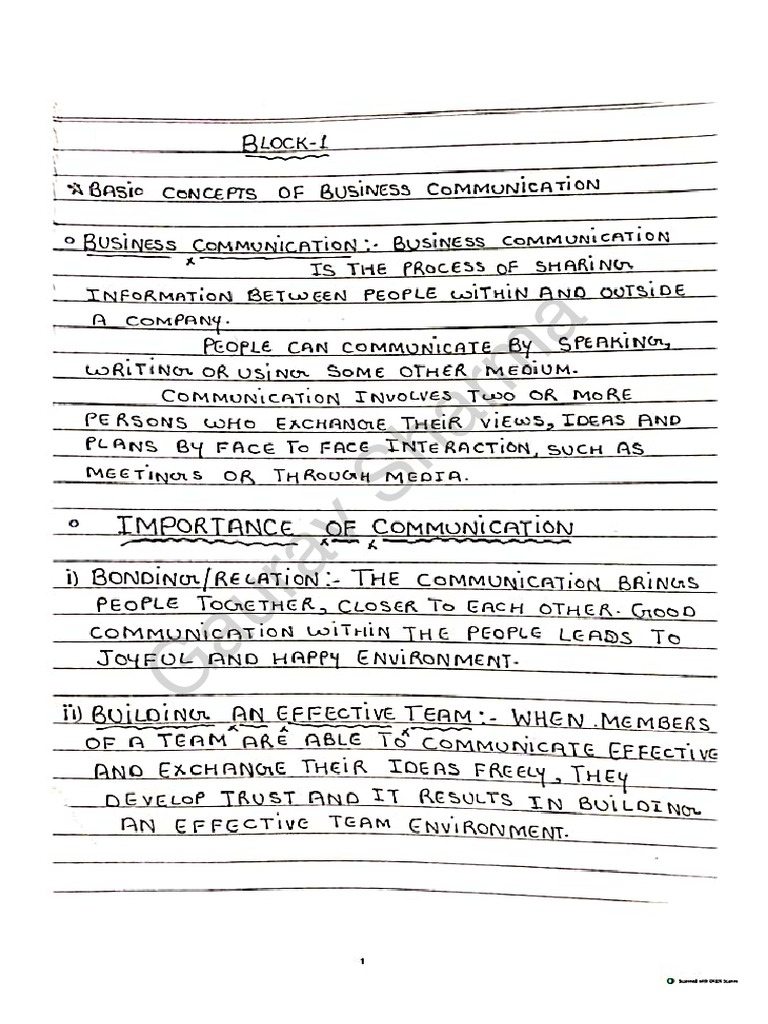 BLOCK-1
☆ BASIC CONCEPTS OF BUSINESS COMMUNICATION
○ BUSINESS COMMUNICATION:- BUSINESS COMMUNICATION
IS THE PROCESS OF SHARING
INFORMATION BETWEEN PEOPLE WITHIN AND OUTSIDE
A COMPANY.
PEOPLE CAN COMMUNICATE BY SPEAKING,
WRITING OR USING SOME OTHER MEDIUM.
COMMUNICATION INVOLVES TWO OR MORE
PERSONS WHO EXCHANGE THEIR VIEWS, IDEAS AND
PLANS BY FACE TO FACE INTERACTION, SUCH AS
MEETINGS OR THROUGH MEDIA.
○ IMPORTANCE OF COMMUNICATION
i) BONDING/RELATION:- THE COMMUNICATION BRINGS
PEOPLE TOGETHER, CLOSER TO EACH OTHER. GOOD
COMMUNICATION WITHIN THE PEOPLE LEADS TO
JOYFUL AND HAPPY ENVIRONMENT.
ii) BUILDING AN EFFECTIVE TEAM:- WHEN MEMBERS
OF A TEAM ARE ABLE TO COMMUNICATE EFFECTIVE
AND EXCHANGE THEIR IDEAS FREELY, THEY
DEVELOP TRUST AND IT RESULTS IN BUILDING
AN EFFECTIVE TEAM ENVIRONMENT.
Gaurav Sharma
1
Scanned with OKEN Scanner